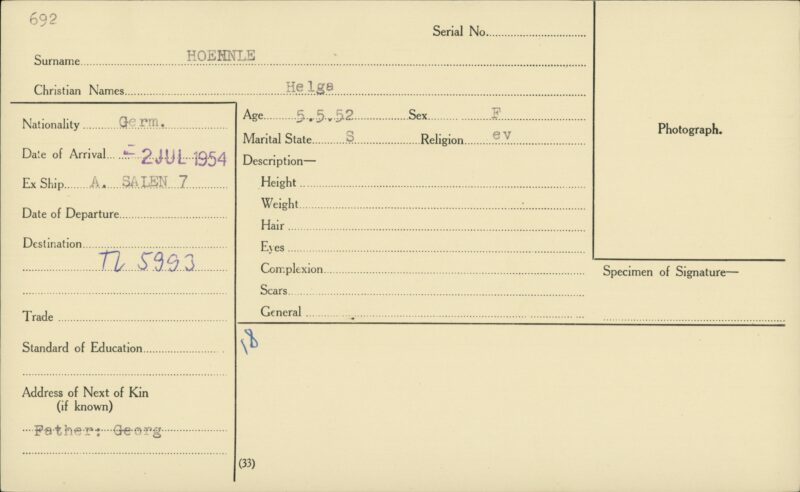 692
Serial No.
Surname HOEHNLE
Christian Names Helga
Nationality Germ.
Date of Arrival - 2 JUL 1954
Ex Ship A. SALEN 7
Date of Departure
Destination
TL 5993
Trade
Standard of Education
Address of Next of Kin
(if known)
Father: Georg
Age 5.5.52 Sex F
Marital State S Religion ev
Description—
Height
Weight
Hair
Eyes
Complexion
Scars
General
18
(33)
Photograph.
Specimen of Signature—